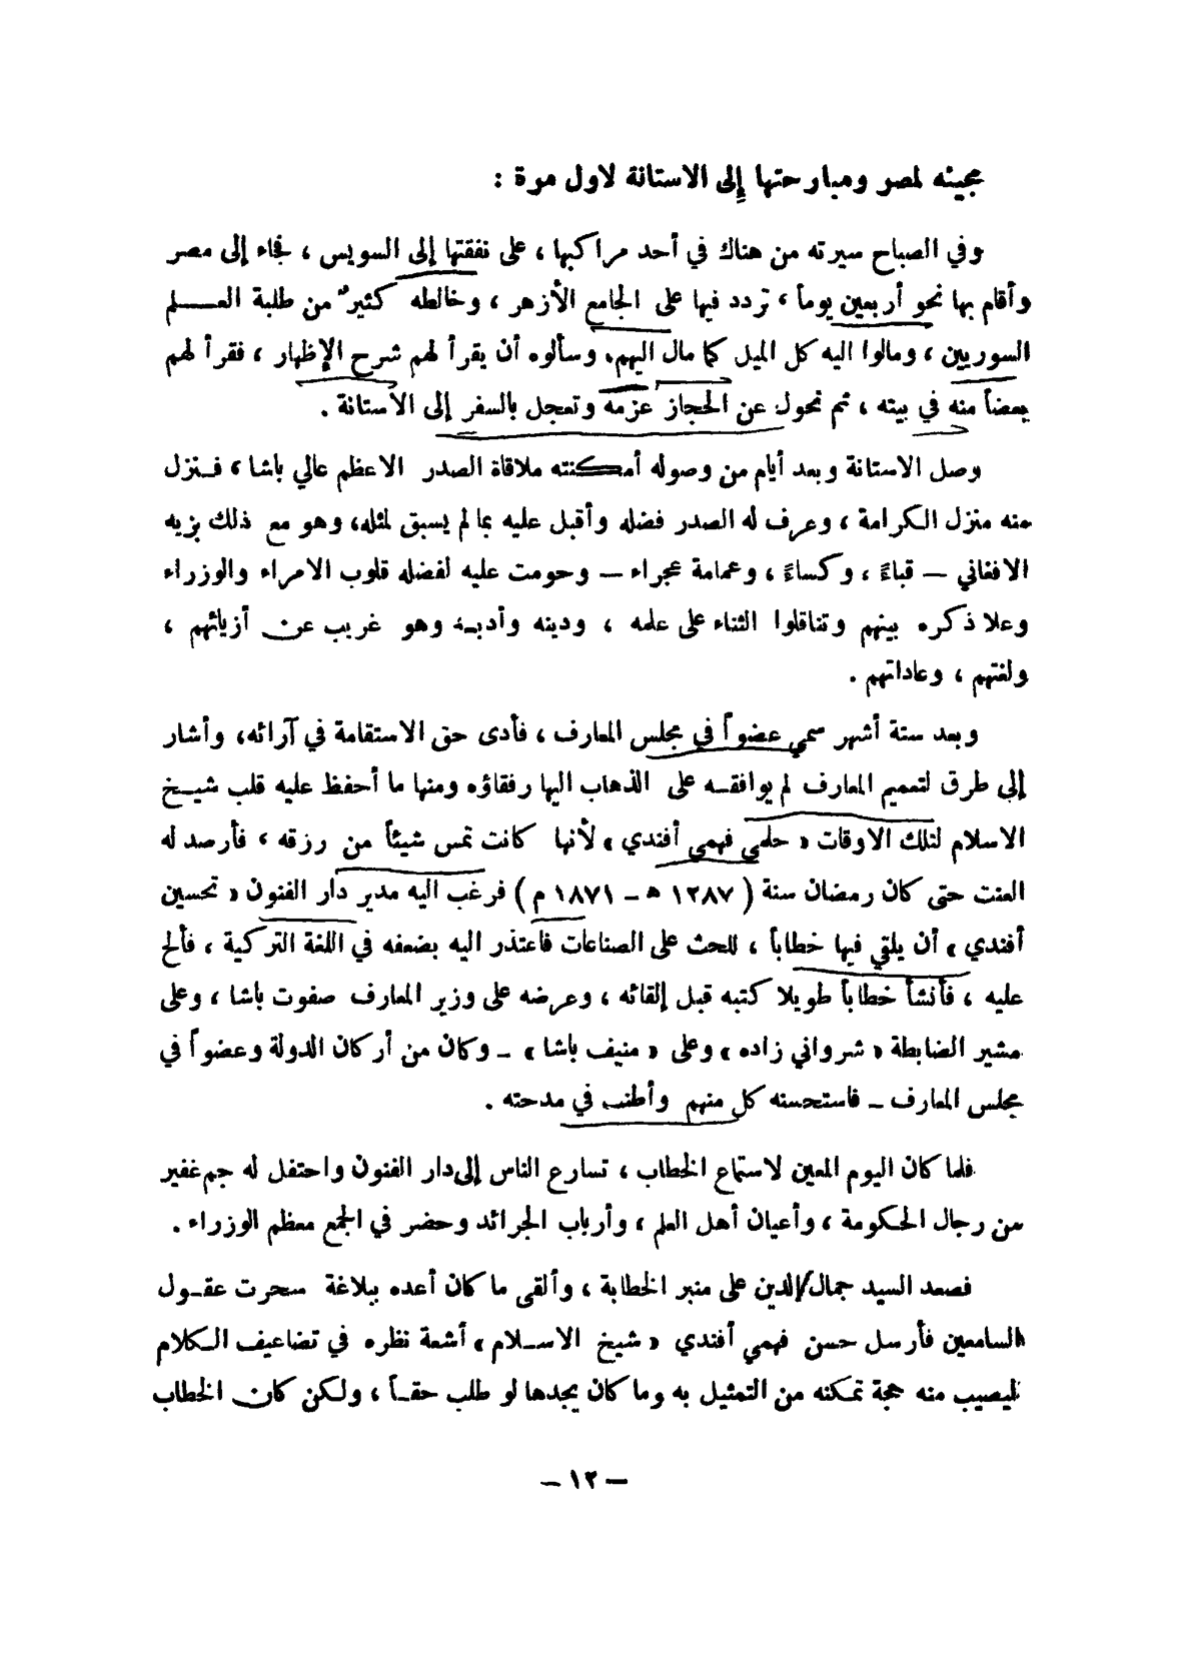 مجيئه لمصر ومبارحتها إلى الاستانة لاول مرة :
وفي الصباح سيرته من هناك في أحد مراكبها ، على نفقتها إلى السويس ، فجاء إلى مصر
وأقام بها نحو أربعين يوماً ، تردد فيها على الجامع الأزهر ، وخالطه كثيرٌ من طلبة العلم
السوريين ، ومالوا اليه كل الميل كما مال اليهم. وسألوه أن يقرأ لهم شرح الإظهار ، فقرأ لهم
بعضاً منه في بيته ، ثم تحول عن الحجاز عزمه وتعجل بالسفر إلى الأستانة .
وصل الاستانة وبعد أيام من وصوله أمكنته ملاقاة الصدر الاعظم عالي باشا ، فنزل
منه منزل الكرامة ، وعرف له الصدر فضله وأقبل عليه بما لم يسبق لمثله، وهو مع ذلك بزيه
الافغاني – قباءً ، وكساءً ، وعمامة عجراء – وحومت عليه لفضله قلوب الامراء والوزراء
وعلا ذكره بينهم وتناقلوا الثناء على علمه ، ودينه وأدبه وهو غريب عن أزيائهم ،
ولغتهم ، وعاداتهم .
وبعد ستة أشهر سمي عضواً في مجلس المعارف ، فأدى حق الاستقامة في آرائه، وأشار
إلى طرق لتعميم المعارف لم يوافقه على الذهاب اليها رفقاؤه ومنها ما أحفظ عليه قلب شيخ
الاسلام لتلك الاوقات « حلمي فهمي أفندي » لأنها كانت تمس شيئاً من رزقه ، فأرصد له
العنت حتى كان رمضان سنة ( ١٢٨٧ ه – ١٨٧١ م ) فرغب اليه مدير دار الفنون « تحسين
أفندي » أن يلقي فيها خطاباً ، للحث على الصناعات فاعتذر اليه بضعفه في اللغة التركية ، فألح
عليه ، فأنشأ خطاباً طويلا كتبه قبل إلقائه ، وعرضه على وزير المعارف صفوت باشا ، وعلى
مشير الضابطة « شرواني زاده » وعلى « منيف باشا » – وكان من أركان الدولة وعضواً في
مجلس المعارف – فاستحسنه كل منهم وأطنب في مدحته .
فلما كان اليوم المعين لاستماع الخطاب ، تسارع الناس إلى دار الفنون واحتفل له جم غفير
من رجال الحكومة ، وأعيان أهل العلم ، وأرباب الجرائد وحضر في الجمع معظم الوزراء .
فصعد السيد جمال الدين على منبر الخطابة ، وألقى ما كان أعده ببلاغة سحرت عقول
السامعين فأرسل حسن فهمي أفندي « شيخ الاسلام » أشعة نظره في تضاعيف الكلام
ليصيب منه حجة تمكنه من التمثيل به وما كان يجدها لو طلب حقاً ، ولكن كان الخطاب
– ١٢ –